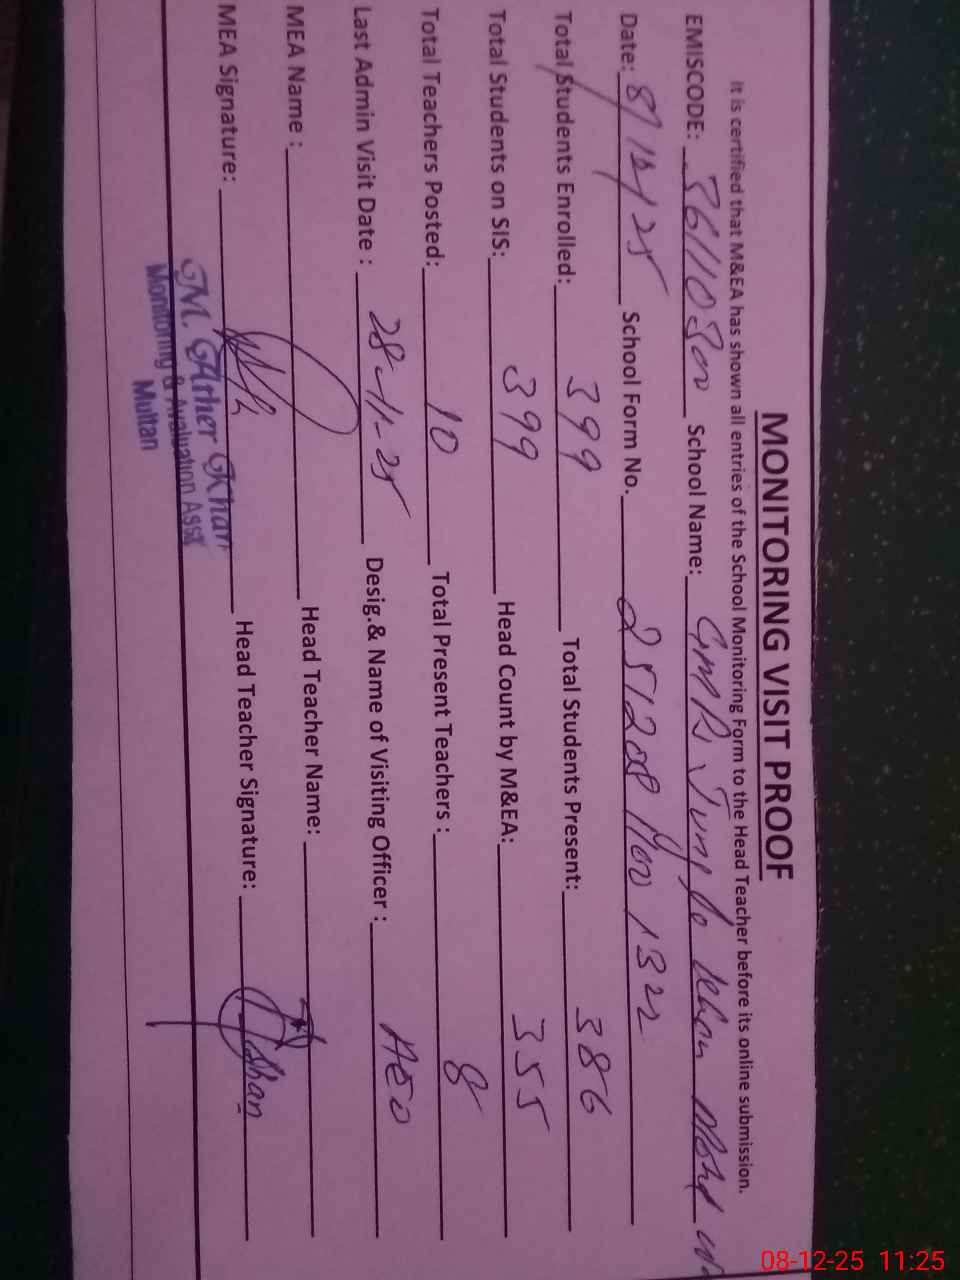 MONITORING VISIT PROOF
It is certified that M&EA has shown all entries of the School Monitoring Form to the Head Teacher before its online submission.
EMISCODE: School Name:
Date: 8/12/25 School Form No.
Total Students Enrolled: 399 Total Students Present: 386
Total Students on SIS: 399 Head Count by M&EA: 355
Total Teachers Posted: 10 Total Present Teachers : 8
Last Admin Visit Date : 28-11-25 Desig.& Name of Visiting Officer : AEO
MEA Name : Head Teacher Name:
MEA Signature: Head Teacher Signature:
M. Ather Khan
Monitoring & Avaluation Asst
Multan
08-12-25 11:25